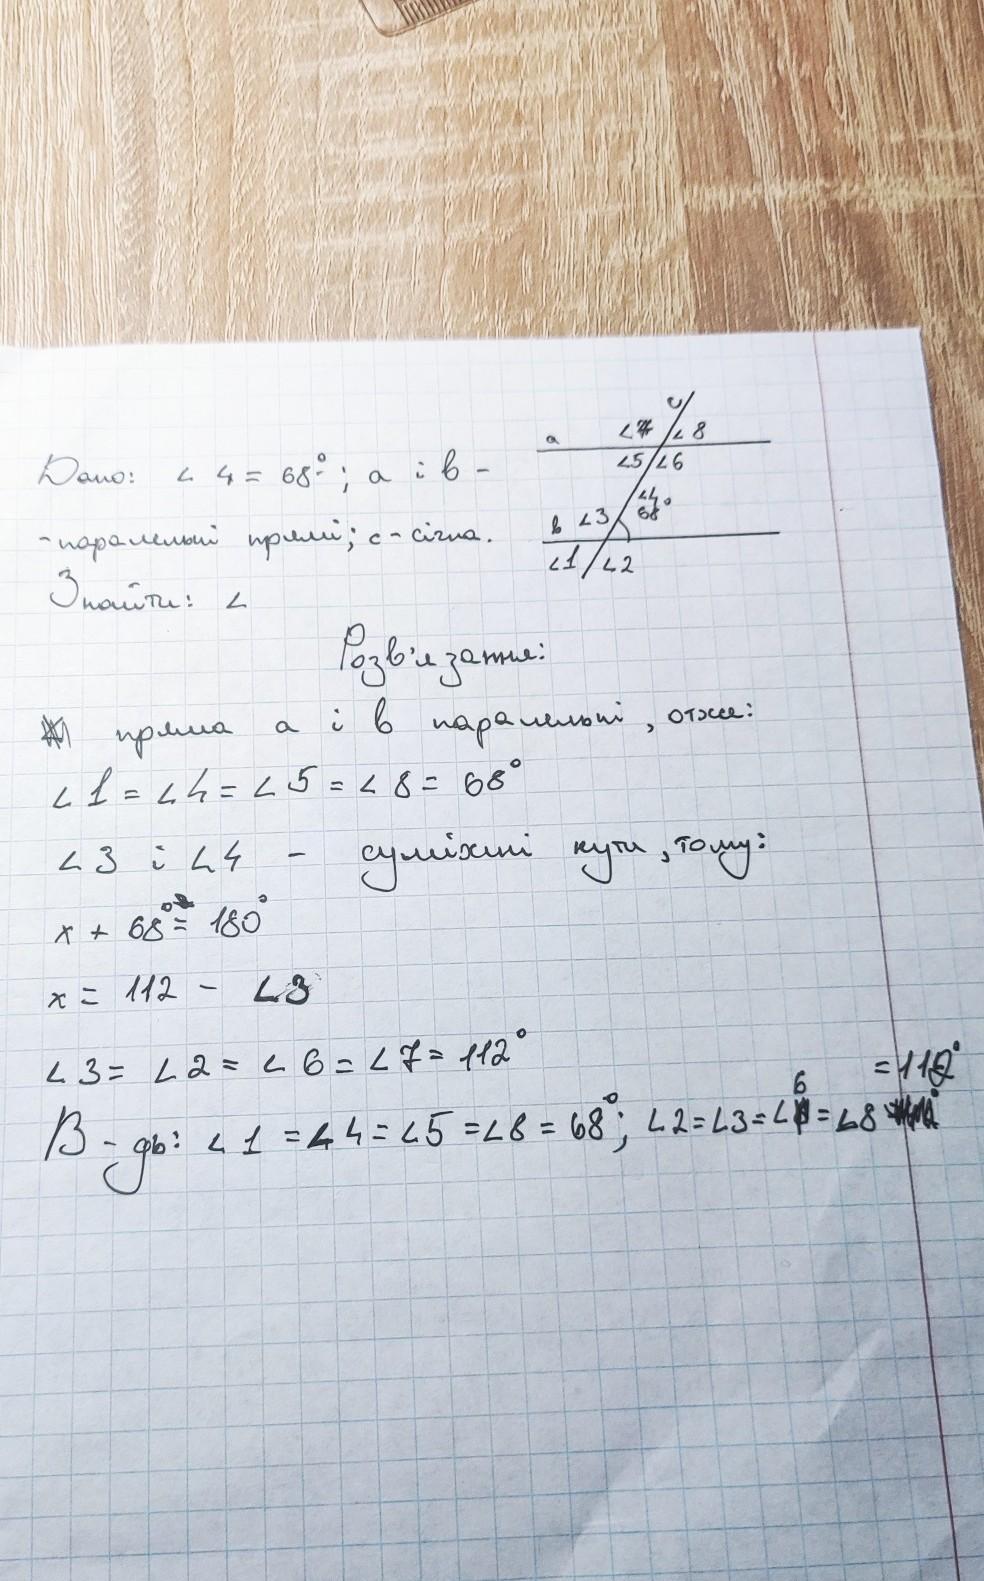 Дано: ∠4 = 68°; а і в -
- паралельні прямі; с - січна.
Знайти: ∠
с
а ∠7 ∠8
∠5 ∠6
в ∠3 ∠4 68°
∠1 ∠2
Розв'язання:
пряма а і в паралельні, отже:
∠1 = ∠4 = ∠5 = ∠8 = 68°
∠3 і ∠4 - суміжні кути, тому:
x + 68° = 180°
x = 112 - ∠3
∠3 = ∠2 = ∠6 = ∠7 = 112°
В-дь: ∠1 = ∠4 = ∠5 = ∠8 = 68°; ∠2 = ∠3 = ∠6 = ∠8 = 112°